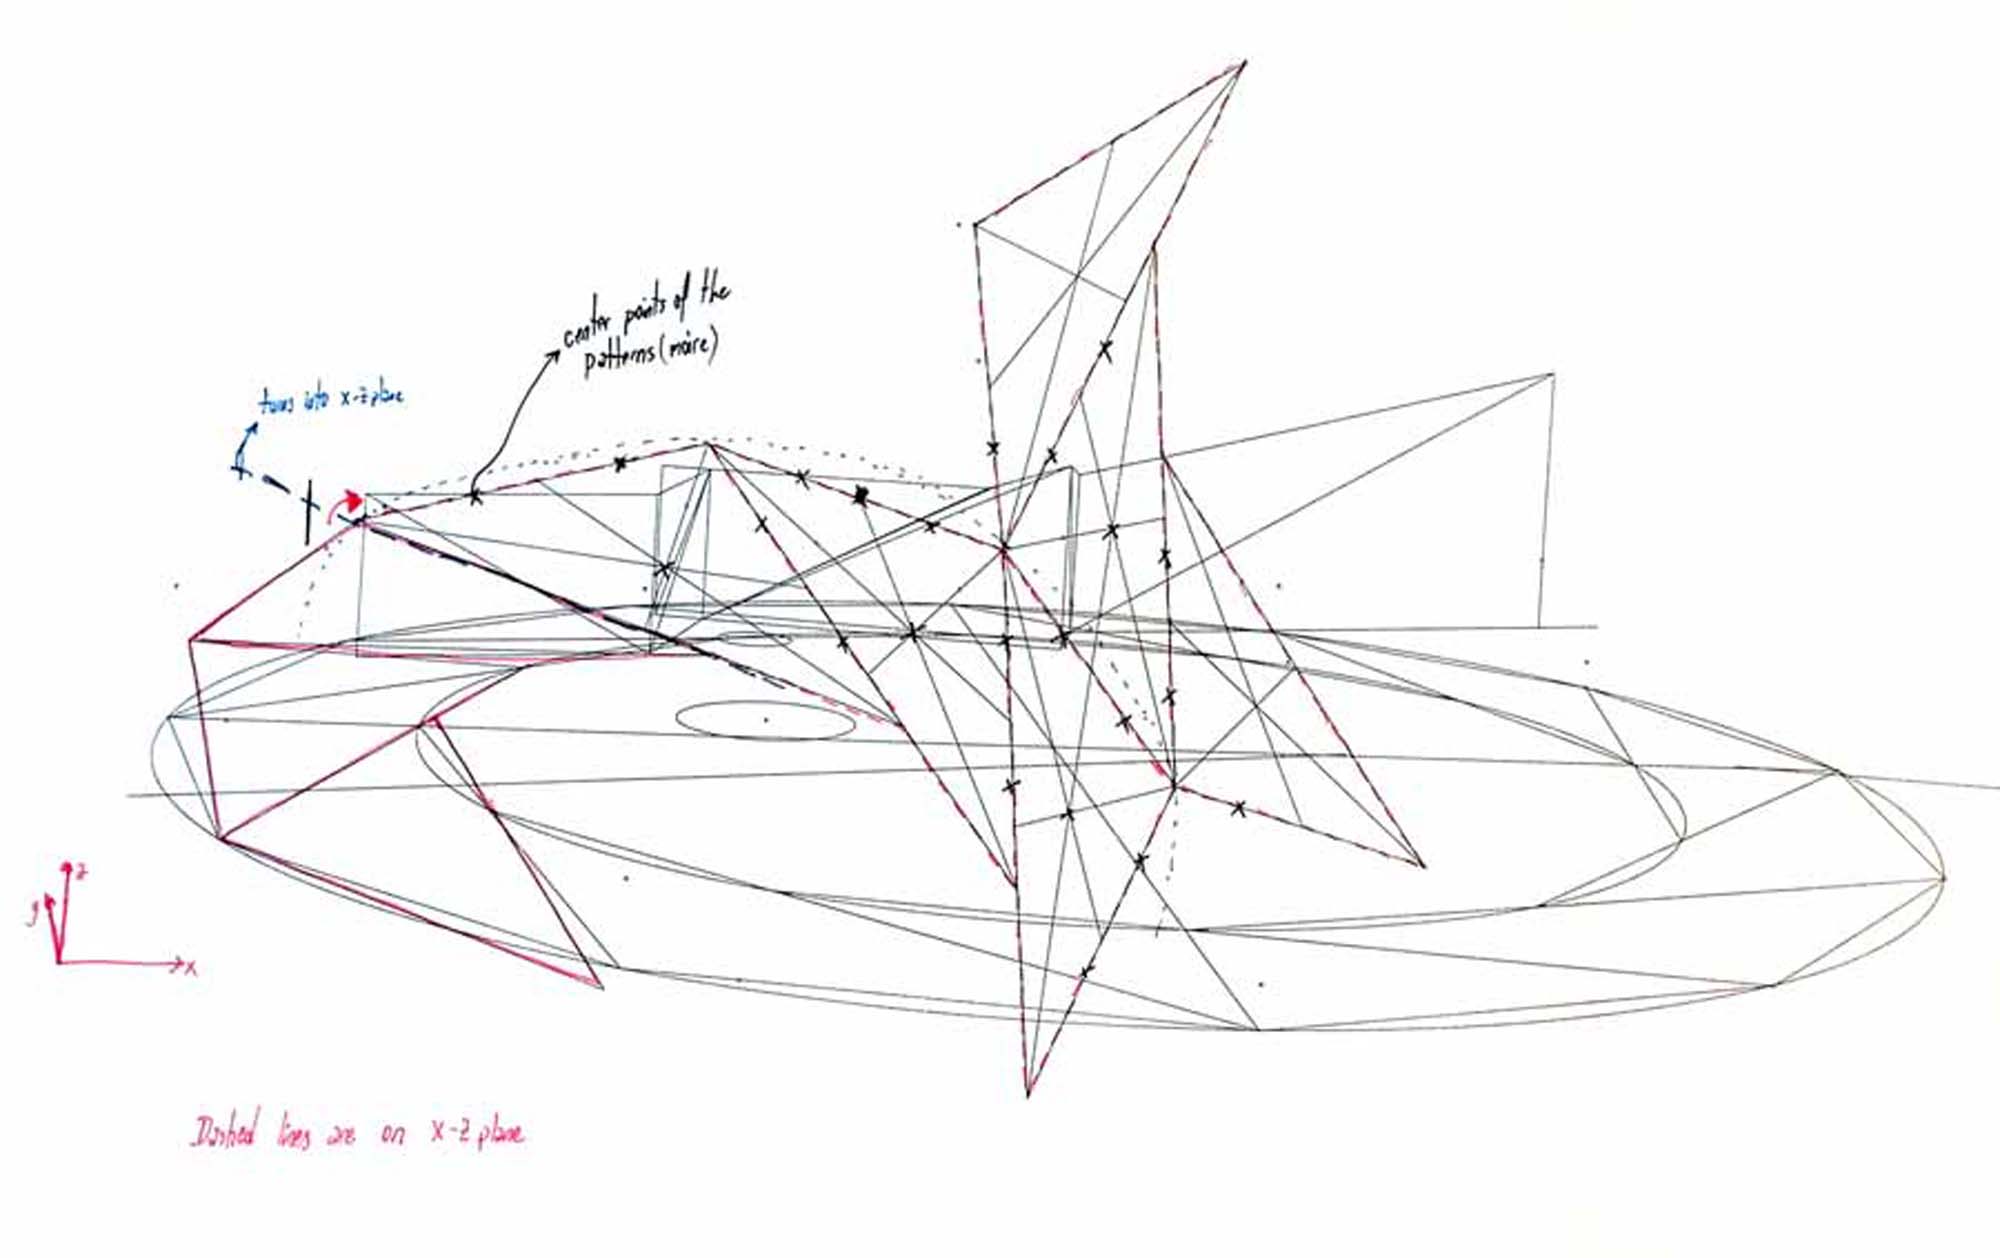 center points of the
patterns (moire)
turns into x-z plane
z
y
x
Dashed lines are on x-z plane